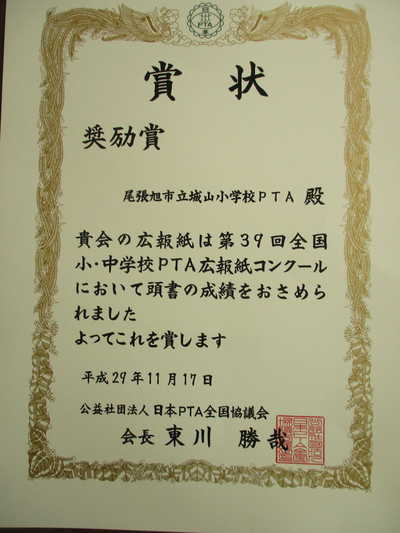 PTA
賞状
奨励賞
尾張旭市立城山小学校PTA 殿
貴会の広報紙は第39回全国
小・中学校PTA広報紙コンクール
において頭書の成績をおさめら
れました
よってこれを賞します
平成29年11月17日
公益社団法人 日本PTA全国協議会
会長 東川 勝哉